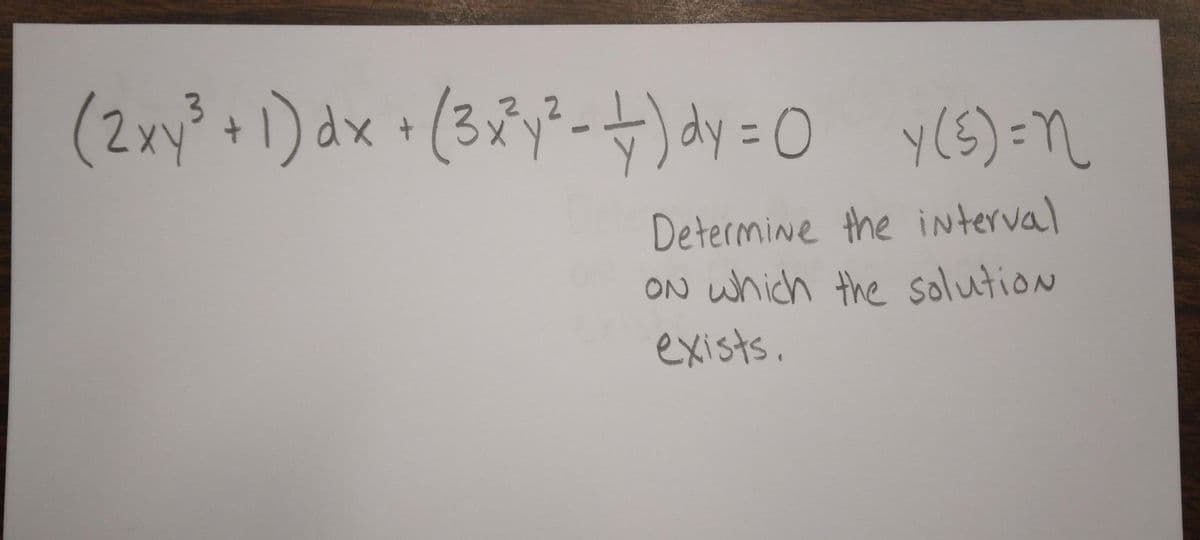 (2xy³ + 1) dx + (3x²y² - 1/y) dy = 0 y(ξ) = η
Determine the interval
on which the solution
exists.